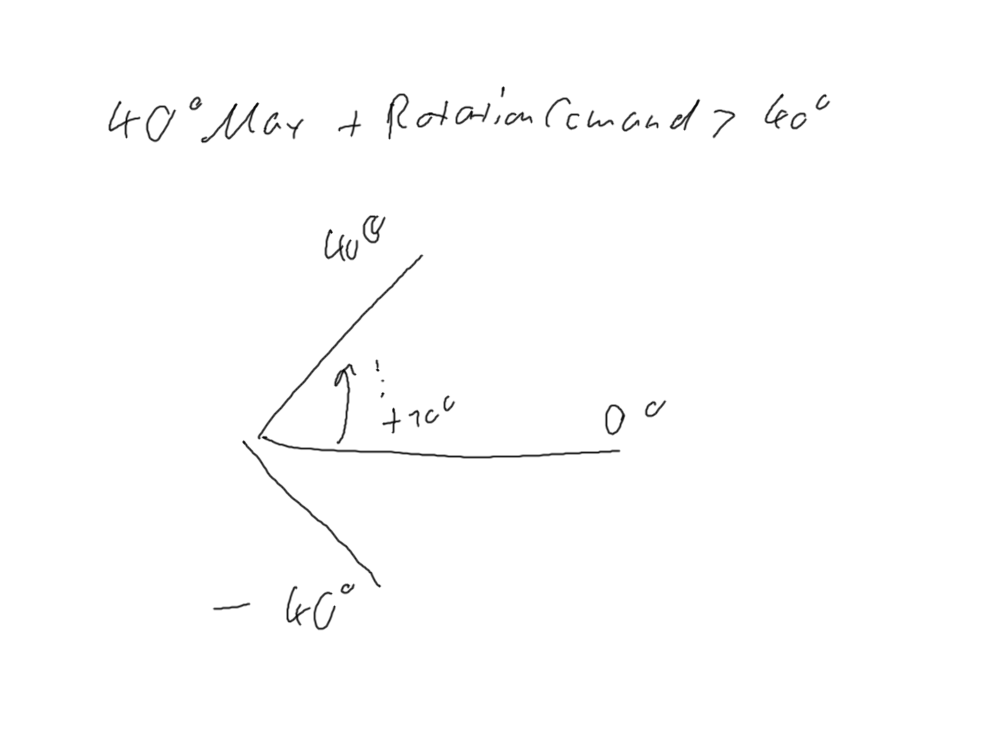 40° Max + Rotation Comand > 40°
40°
+70°
0°
- 40°